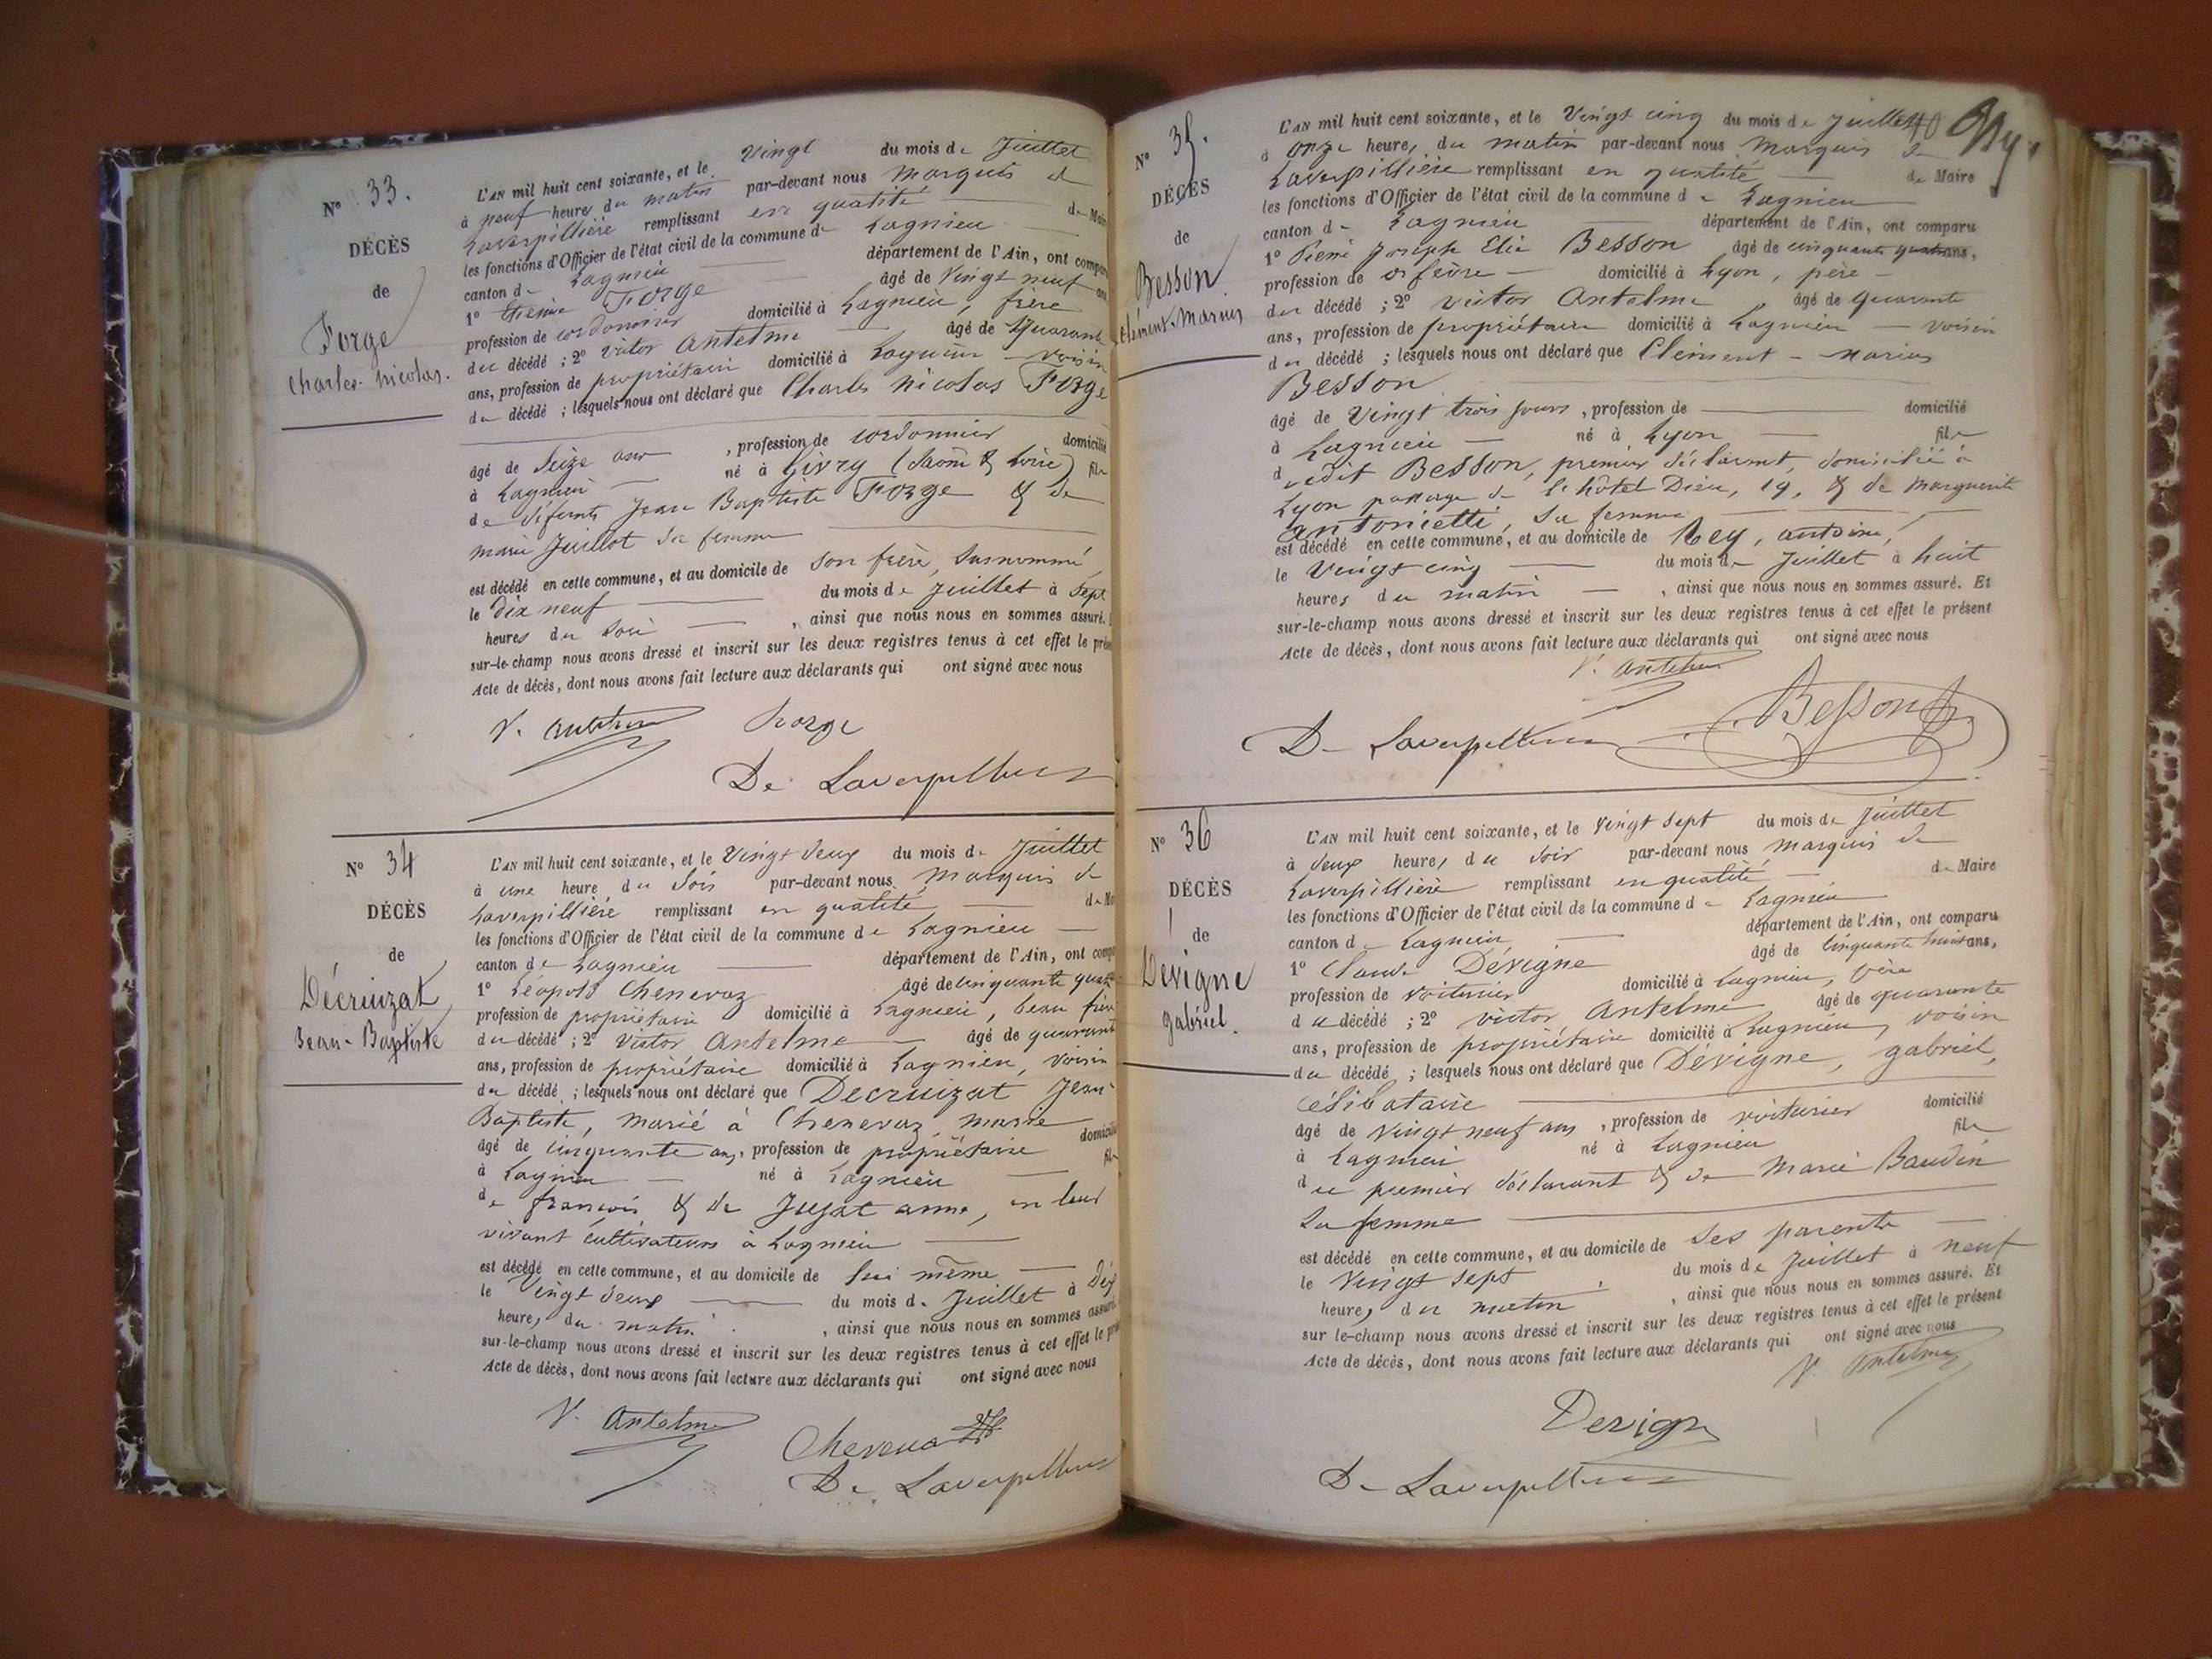 N° 33.
DÉCÈS
de
Forge
Charles-Nicolas.
L'AN mil huit cent soixante, et le Vingt du mois de Juillet
à neuf heures du matin par-devant nous Marquis de
Laverpillière remplissant en qualité de Maire
les fonctions d'Officier de l'état civil de la commune de Lagnieu
canton de Lagnieu département de l'Ain, ont comparu
1° Forge âgé de Vingt neuf ans
profession de cordonnier domicilié à Lagnieu, frère
du décédé ; 2° Victor Antelme âgé de Quarante
ans, profession de propriétaire domicilié à Lagnieu voisin
du décédé ; lesquels nous ont déclaré que Charles Nicolas Forge
âgé de Seize ans , profession de cordonnier domicilié
à Lagnieu né à Givry (Saône & Loire) fils
de défunts Jean Baptiste Forge & de
Marie Juillot sa femme
est décédé en cette commune, et au domicile de son frère, susnommé,
le dix neuf du mois de Juillet à Sept
heures du soir , ainsi que nous nous en sommes assuré.
sur-le-champ nous avons dressé et inscrit sur les deux registres tenus à cet effet le
Acte de décès, dont nous avons fait lecture aux déclarants qui ont signé avec nous
V. Antelme Forge
De Laverpilliere
N° 34
DÉCÈS
de
Décruizat
Jean-Baptiste
L'AN mil huit cent soixante, et le Vingt deux du mois de Juillet
à une heure du soir par-devant nous Marquis de
Laverpillière remplissant en qualité
les fonctions d'Officier de l'état civil de la commune de Lagnieu
canton de Lagnieu département de l'Ain, ont
1° Léopold Chenevaz âgé de cinquante
profession de propriétaire domicilié à Lagnieu, beau frère
du décédé ; 2° Victor Antelme âgé de quarante
ans, profession de propriétaire domicilié à Lagnieu, voisin
du décédé ; lesquels nous ont déclaré que Decruizat Jean-
Baptiste, marié à Chenevaz Marie
âgé de cinquante ans, profession de propriétaire domicilié
à Lagnieu né à Lagnieu fils
de françois & de Jujat anne, en leur
vivant cultivateurs à Lagnieu
est décédé en cette commune, et au domicile de lui même
le Vingt deux du mois de Juillet à Dix
heures du matin , ainsi que nous nous en sommes assuré.
sur-le-champ nous avons dressé et inscrit sur les deux registres tenus à cet effet le
Acte de décès, dont nous avons fait lecture aux déclarants qui ont signé avec nous
V. Antelme
Chenevaz
De Laverpilliere
N° 35.
DÉCÈS
de
Besson
Clément-Marius
L'AN mil huit cent soixante, et le Vingt cinq du mois de Juillet
à onze heures du matin par-devant nous Marquis de
Laverpillière remplissant en qualité de Maire
les fonctions d'Officier de l'état civil de la commune de Lagnieu
canton de Lagnieu département de l'Ain, ont comparu
1° Pierre Joseph Elie Besson âgé de cinquante quatre ans,
profession de orfèvre domicilié à Lyon, père
du décédé ; 2° Victor Antelme , âgé de Quarante
ans, profession de propriétaire domicilié à Lagnieu voisin
du décédé ; lesquels nous ont déclaré que Clément - Marius
Besson
âgé de Vingt trois jours , profession de domicilié
à Lagnieu né à Lyon fils
dudit Besson, premier déclarant, domicilié à
Lyon passage de l'hôtel Dieu, 19, & de Marguerite
Antonietti, sa femme
est décédé en cette commune, et au domicile de Rey, antoine,
le Vingt cinq du mois de Juillet à huit
heures du matin , ainsi que nous nous en sommes assuré. Et
sur-le-champ nous avons dressé et inscrit sur les deux registres tenus à cet effet le présent
Acte de décès, dont nous avons fait lecture aux déclarants qui ont signé avec nous
V. Antelme
De Laverpilliere Besson
N° 36
DÉCÈS
de
Devigne
gabriel.
L'AN mil huit cent soixante, et le Vingt sept du mois de Juillet
à deux heures du soir par-devant nous Marquis de
Laverpillière remplissant en qualité de Maire
les fonctions d'Officier de l'état civil de la commune de Lagnieu
canton de Lagnieu département de l'Ain, ont comparu
1° Claude Dévigne âgé de cinquante huit ans,
profession de voiturier domicilié à Lagnieu, père
du décédé ; 2° Victor Antelme âgé de quarante
ans, profession de propriétaire domicilié à Lagnieu, voisin
du décédé ; lesquels nous ont déclaré que Dévigne, gabriel,
célibataire
âgé de vingt neuf ans , profession de voiturier domicilié
à Lagnieu né à Lagnieu fils
du premier déclarant & de Marie Baudin
sa femme
est décédé en cette commune, et au domicile de ses parents
le Vingt sept du mois de Juillet à neuf
heures du matin , ainsi que nous nous en sommes assuré. Et
sur le-champ nous avons dressé et inscrit sur les deux registres tenus à cet effet le présent
Acte de décès, dont nous avons fait lecture aux déclarants qui ont signé avec nous
V. Antelme
Devigne
De Laverpilliere